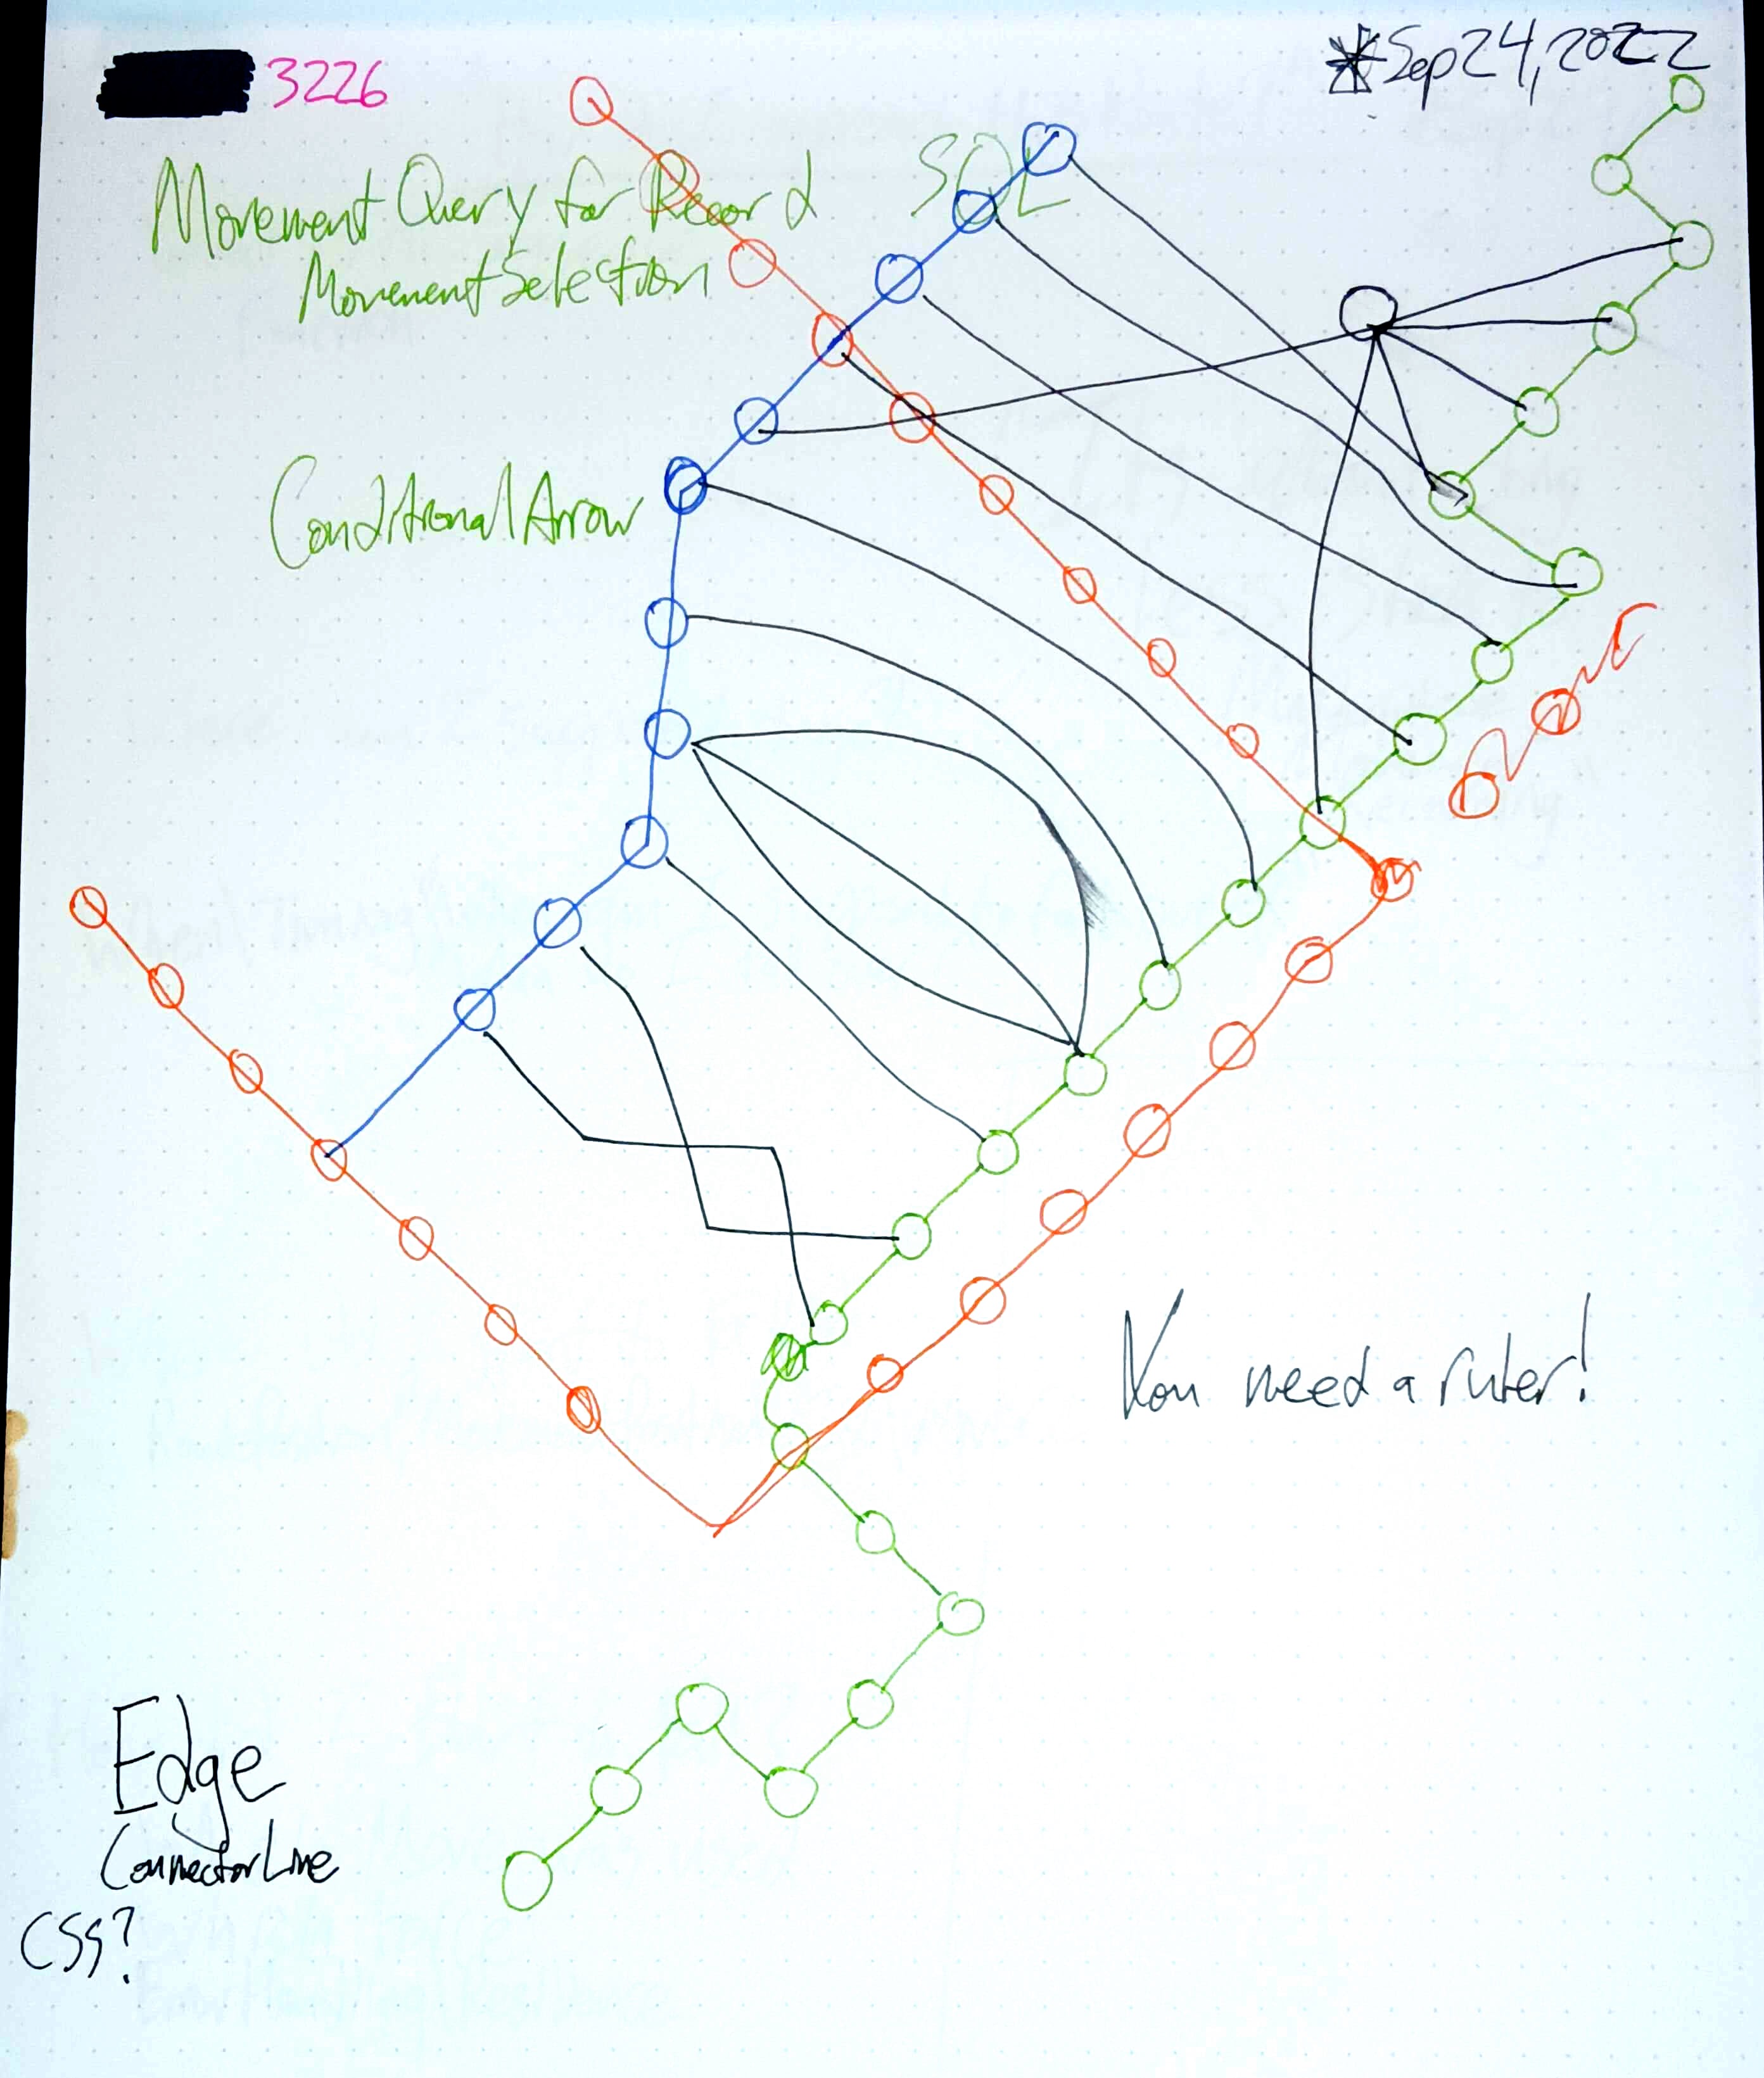 3226
*Sep 24, 2022
Movement Query for Record SQL
Movement Selection
Conditional Arrow
You need a ruler!
Edge
Connector Line
CSS?